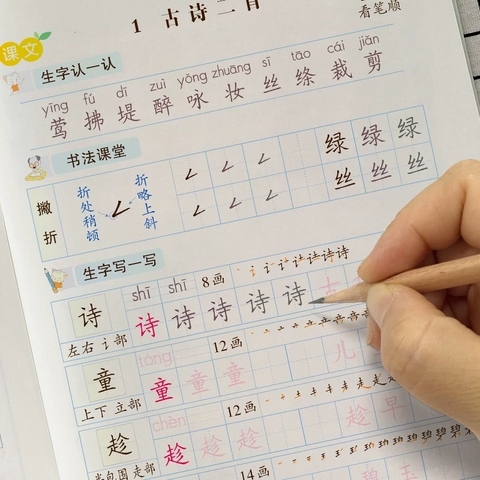 1 古诗二首
看笔顺
课文
生字认一认
yīng fú dī zuì yǒng zhuāng sī tāo cái jiǎn
莺 拂 堤 醉 咏 妆 丝 绦 裁 剪
书法课堂
撇折
折处稍顿
折略上斜
绿 绿 绿
丝 丝 丝
生字写一写
shī shī 8画
诗 诗 诗 诗 诗 诗
左右 讠部
tóng 12画
童 童 童 童 儿
上下 立部
chèn 12画
趁 趁 趁 趁 趁 早
半包围 走部
14画
碧 玉